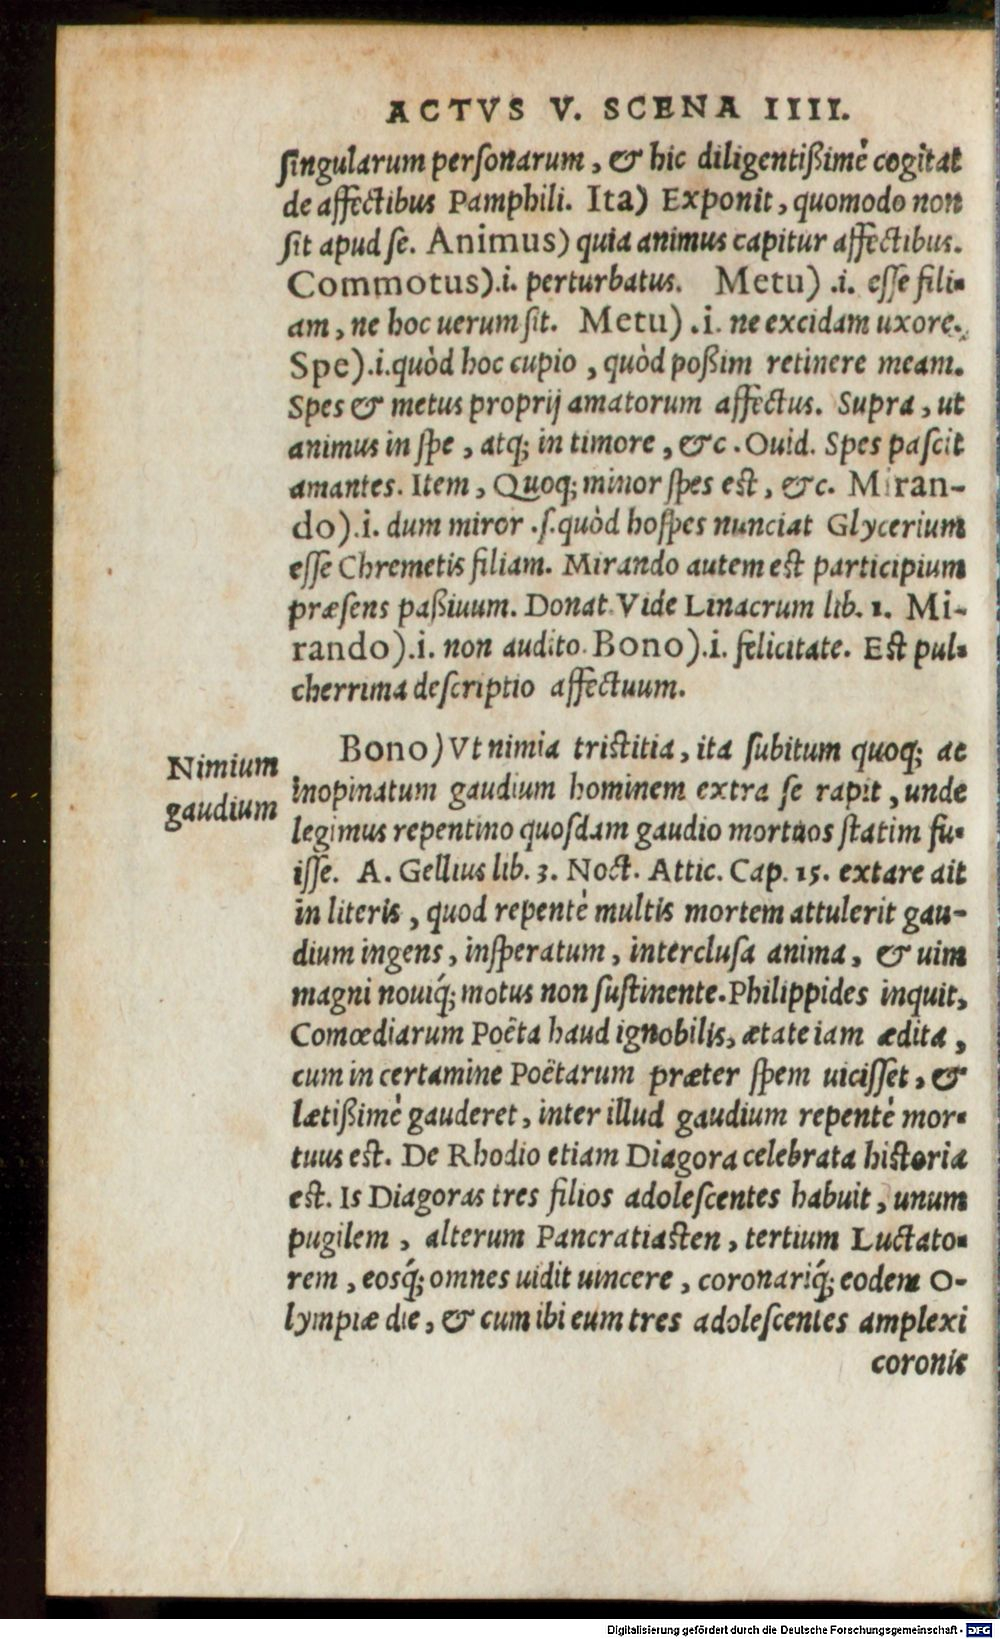 ACTVS V. SCENA IIII.
ſingularum perſonarum, & hic diligentißimè cogitat
de affectibus Pamphili. Ita) Exponit, quomodo non
ſit apud ſe. Animus) quia animus capitur affectibus.
Commotus).i. perturbatus. Metu) .i. eſſe fili-
am, ne hoc uerum ſit. Metu) .i. ne excidam uxore.
Spe).i.quòd hoc cupio, quòd poßim retinere meam.
Spes & metus proprij amatorum affectus. Supra, ut
animus in ſpe, atq; in timore, &c. Ouid. Spes paſcit
amantes. Item, Quoq; minor ſpes est, &c. Miran-
do).i. dum miror .ſ.quòd hoſpes nunciat Glycerium
eſſe Chremetis filiam. Mirando autem est participium
præſens paßiuum. Donat. Vide Linacrum lib. 1. Mi-
rando).i. non audito. Bono).i. felicitate. Est pul-
cherrima deſcriptio affectuum.
Bono) Vt nimia tristitia, ita ſubitum quoq; ac
Nimium
gaudium
inopinatum gaudium hominem extra ſe rapit, unde
legimus repentino quoſdam gaudio mortuos ſtatim fu-
iſſe. A. Gellius lib. 3. Noct. Attic. Cap. 15. extare ait
in literis, quod repentè multis mortem attulerit gau-
dium ingens, inſperatum, interclusa anima, & uim
magni nouiq́; motus non ſuſtinente. Philippides inquit,
Comœdiarum Poëta haud ignobilis, ætate iam ædita,
cum in certamine Poëtarum præter ſpem uiciſſet, &
lætißimè gauderet, inter illud gaudium repentè mor-
tuus est. De Rhodio etiam Diagora celebrata historia
est. Is Diagoras tres filios adoleſcentes habuit, unum
pugilem, alterum Pancratiasten, tertium Luctato-
rem, eosq́; omnes uidit uincere, coronariq́; eodem O-
lympiæ die, & cum ibi eum tres adoleſcentes amplexi
coronis